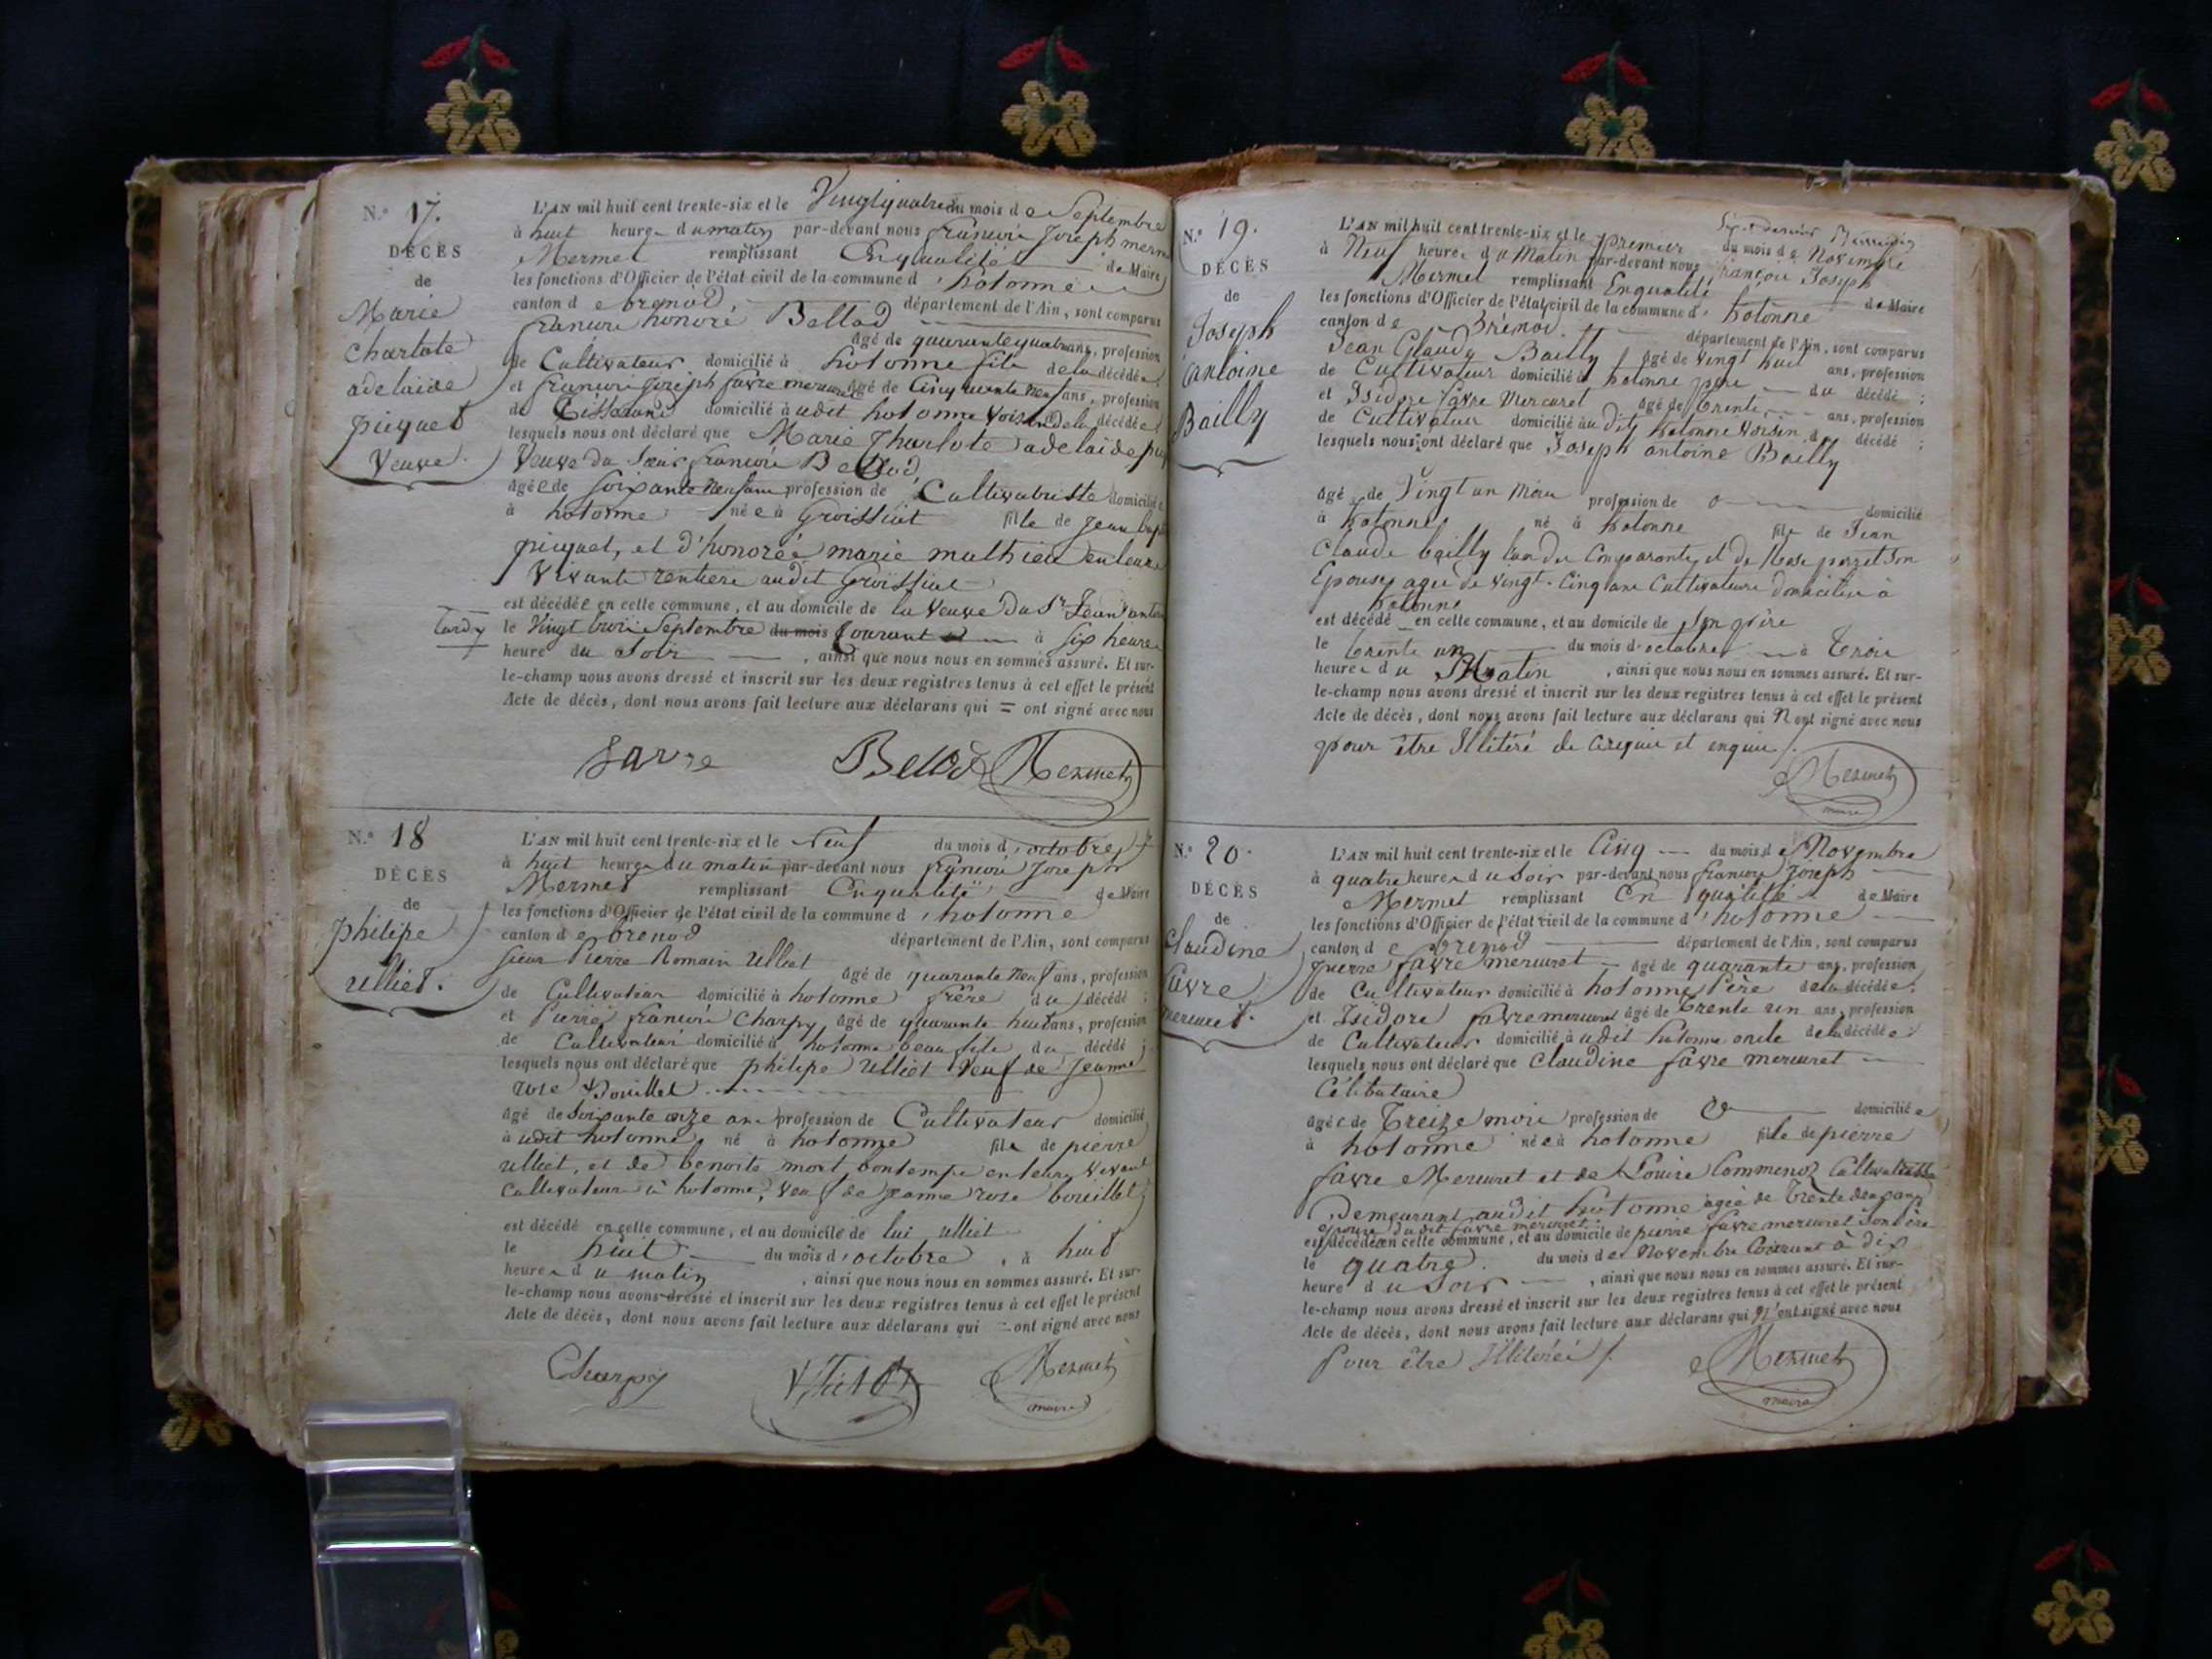 N.o 17.
DÉCÈS
de
Marie
Charlote
adelaide
piquet
Veuve.
L'AN mil huit cent trente-six et le Vingtquatre du mois de Septembre
à huit heures du matin par-devant nous françois Joseph
Mermet remplissant Enqualité de Maire
les fonctions d'Officier de l'état civil de la commune d'hotonne
canton de brenod département de l'Ain, sont comparus
françois honoré Bellod
âgé de quarantequatre ans, profession
de Cultivateur domicilié à hotonne fils de la décédée
et françois Joseph favre mercuret âgé de Cinquante neuf ans, profession
de Tisserand domicilié audit hotonne Voisin de la décédée
lesquels nous ont déclaré que Marie Charlote adelaide
Veuve du Sieur françois Bellod
âgée de soixante neuf ans profession de Cultivatrice domiciliée
à hotonne née à Groissiat fille de Jean
piquet, et d'honorée marie mathieu en leur
Vivant rentiers audit Groissiat
est décédée en cette commune, et au domicile de la Veuve du Sr Jean
tardy le Vingt trois Septembre du mois Courant à six heures
heure du Soir , ainsi que nous nous en sommes assuré. Et sur-
le-champ nous avons dressé et inscrit sur les deux registres tenus à cet effet le présent
Acte de décès, dont nous avons fait lecture aux déclarans qui = ont signé avec nous
favre Bellod Mermet
N.o 18
DÉCÈS
de
philipe
ulliet.
L'AN mil huit cent trente-six et le neuf du mois d'octobre
à huit heures du matin par-devant nous françois Joseph
Mermet remplissant Enqualité de Maire
les fonctions d'Officier de l'état civil de la commune d'hotonne
canton de brenod département de l'Ain, sont comparus
sieur Pierre Romain Ulliet
âgé de quarante neuf ans, profession
de Cultivateur domicilié à hotonne frère du décédé ;
et Pierre françois Charpy âgé de quarante huit ans, profession
de Cultivateur domicilié à hotonne beau fils du décédé ;
lesquels nous ont déclaré que philipe Ulliet Veuf de Jeanne
rose Bouillet
âgé de Soixante onze ans profession de Cultivateur domicilié
à udit hotonne né à hotonne fils de pierre
ulliet, et de benoite mont bontemps en leurs Vivant
Cultivateurs à hotonne, Veuf de jeanne rose bouillet
est décédé en cette commune, et au domicile de lui ulliet
le huit du mois d'octobre , à huit
heures du matin , ainsi que nous nous en sommes assuré. Et sur-
le-champ nous avons dressé et inscrit sur les deux registres tenus à cet effet le présent
Acte de décès, dont nous avons fait lecture aux déclarans qui = ont signé avec nous
Charpy Mermet
maire
N.o 19.
DÉCÈS
de
Joseph
antoine
Bailly
L'AN mil huit cent trente-six et le premier du mois de Novembre
à Neuf heures du Matin par-devant nous françois Joseph
Mermet remplissant Enqualité de Maire
les fonctions d'Officier de l'état civil de la commune d'hotonne
canton de Brénod département de l'Ain, sont comparus
Jean Claude Bailly âgé de vingt huit ans, profession
de Cultivateur domicilié à hotonne père du décédé ;
et Isidore favre Mercuret âgé de trente ans, profession
de Cultivateur domicilié au dit hotonne Voisin du décédé ;
lesquels nous ont déclaré que Joseph antoine Bailly
âgé de Vingt un Mois profession de domicilié
à hotonne né à hotonne fils de Jean
Claude bailly l'un des Comparants, et de Rose perret son
Epouse agée de vingt-cinq ans Cultivateurs domiciliés à
hotonne
est décédé en cette commune, et au domicile de son père
le trente un du mois d'octobre à trois
heures du Matin , ainsi que nous nous en sommes assuré. Et sur-
le-champ nous avons dressé et inscrit sur les deux registres tenus à cet effet le présent
Acte de décès, dont nous avons fait lecture aux déclarans qui N'ont signé avec nous
pour être Illitéré de ce requis et enquis
Mermet
maire
N.o 20.
DÉCÈS
de
Claudine
favre
mercuret.
L'AN mil huit cent trente-six et le Cinq du mois de Novembre
à quatre heures du soir par-devant nous françois Joseph
Mermet remplissant En qualité de Maire
les fonctions d'Officier de l'état civil de la commune d'hotonne
canton de brenod département de l'Ain, sont comparus
pierre favre mercuret âgé de quarante ans, profession
de Cultivateur domicilié à hotonne Père de la décédée ;
et Isidore favre mercuret âgé de trente un ans, profession
de Cultivateur domicilié à udit hotonne oncle de la décédée
lesquels nous ont déclaré que Claudine favre mercuret
Célibataire
âgée de Treize mois profession de domiciliée
à hotonne née à hotonne fille de pierre
favre Mercuret et de Louise Commenoz Cultivatrice
Demeurant audit hotonne agée de Trente deux ans
épouse du dit favre mercuret.
est décédée en cette commune, et au domicile de pierre favre mercuret son père
le quatre du mois de Novembre Courant à dix
heure du Soir , ainsi que nous nous en sommes assuré. Et sur-
le-champ nous avons dressé et inscrit sur les deux registres tenus à cet effet le présent
Acte de décès, dont nous avons fait lecture aux déclarans qui N'ont signé avec nous
Pour être Illiterés
Mermet
maire